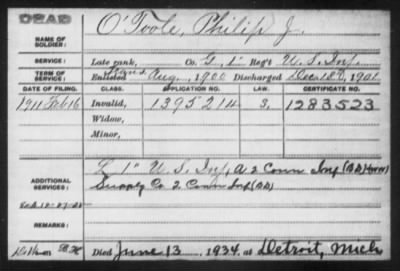 DEAD
NAME OF SOLDIER: O'Toole, Philip J.
SERVICE: Late rank, Co. G, 1" Reg't U.S. Inf.
TERM OF SERVICE: Enlisted Aug. , 1900 Discharged , 190
DATE OF FILING. CLASS. APPLICATION NO. LAW. CERTIFICATE NO.
1911 Feb 16 Invalid, 1395214 3, 1283523
Widow,
Minor,
ADDITIONAL SERVICES: L 1" U.S. Inf, A. 2 Conn Inf
Supply Co 2 Conn Inf
REMARKS:
Died June 13, 1934, at Detroit, Mich